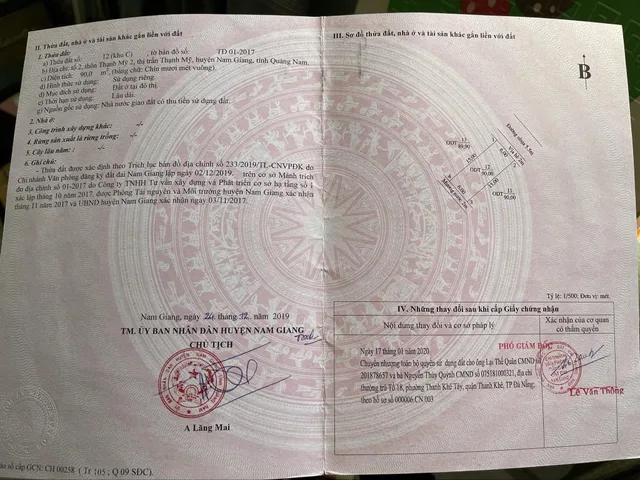 II. Thửa đất, nhà ở và tài sản khác gắn liền với đất
1. Thửa đất:
a) Thửa đất số: 12 (khu C) , tờ bản đồ số: TĐ 01-2017
b) Địa chỉ: tổ 2, thôn Thạnh Mỹ 2, thị trấn Thạnh Mỹ, huyện Nam Giang, tỉnh Quảng Nam.
c) Diện tích: 90,0 m², (bằng chữ: Chín mươi mét vuông).
d) Hình thức sử dụng: Sử dụng riêng.
đ) Mục đích sử dụng: Đất ở tại đô thị.
e) Thời hạn sử dụng: Lâu dài.
g) Nguồn gốc sử dụng: Nhà nước giao đất có thu tiền sử dụng đất.
2. Nhà ở: -/-
3. Công trình xây dựng khác: -/-
4. Rừng sản xuất là rừng trồng: -/-
5. Cây lâu năm: -/-
6. Ghi chú:
- Thửa đất được xác định theo Trích lục bản đồ địa chính số 233/2019/TL-CNVPĐK do
Chi nhánh Văn phòng đăng ký đất đai Nam Giang lập ngày 02/12/2019. trên cơ sở Mảnh trích
đo địa chính số 01-2017 do Công ty TNHH Tư vấn xây dựng và Phát triển cơ sở hạ tầng số 1
xác lập tháng 10 năm 2017, được Phòng Tài nguyên và Môi trường huyện Nam Giang xác nhận
tháng 11 năm 2017 và UBND huyện Nam Giang xác nhận ngày 03/11/2017.
Nam Giang, ngày 24 tháng 12 năm 2019
TM. ỦY BAN NHÂN DÂN HUYỆN NAM GIANG
CHỦ TỊCH
A Lăng Mai
vào sổ cấp GCN: CH 00258 ( Tr 105 ; Q 09 SĐC).
III. Sơ đồ thửa đất, nhà ở và tài sản khác gắn liền với đất
B
Đường nhựa 5.5m
Vỉa hè 2m
ODT 13/90,00
ODT 12/90,00
ODT 11/90,00
15,00
6,00
15,00
6,00
Mương nước 2m
Tỷ lệ: 1/500; Đơn vị: mét.
IV. Những thay đổi sau khi cấp Giấy chứng nhận
Nội dung thay đổi và cơ sở pháp lý
Xác nhận của cơ quan
có thẩm quyền
Ngày 17 tháng 01 năm 2020.
Chuyển nhượng toàn bộ quyền sử dụng đất cho ông Lại Thế Quân CMND số
201878657 và bà Nguyễn Thúy Quỳnh CMND số 075181000321, địa chỉ
thường trú Tổ 18, phường Thanh Khê Tây, quận Thanh Khê, TP Đà Nẵng,
theo hồ sơ số 000006.CN.003
PHÓ GIÁM ĐỐC
Lê Văn Thông